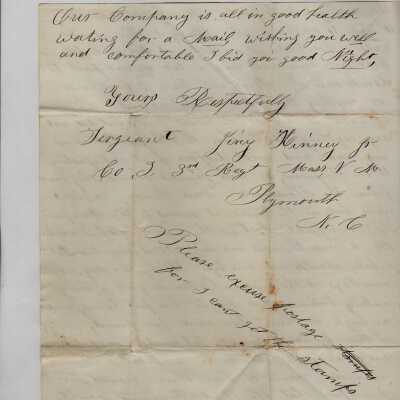 Our Company is all in good health
wating for a Mail wishing you well
and comfortable I bid you good Night,
Yours Respectfully
Sergeant Jirey Kinney Jr
Co I 3rd Regt Mass V M
Plymouth
N. C
Please excuse postage stamps
for I cant get the stamps